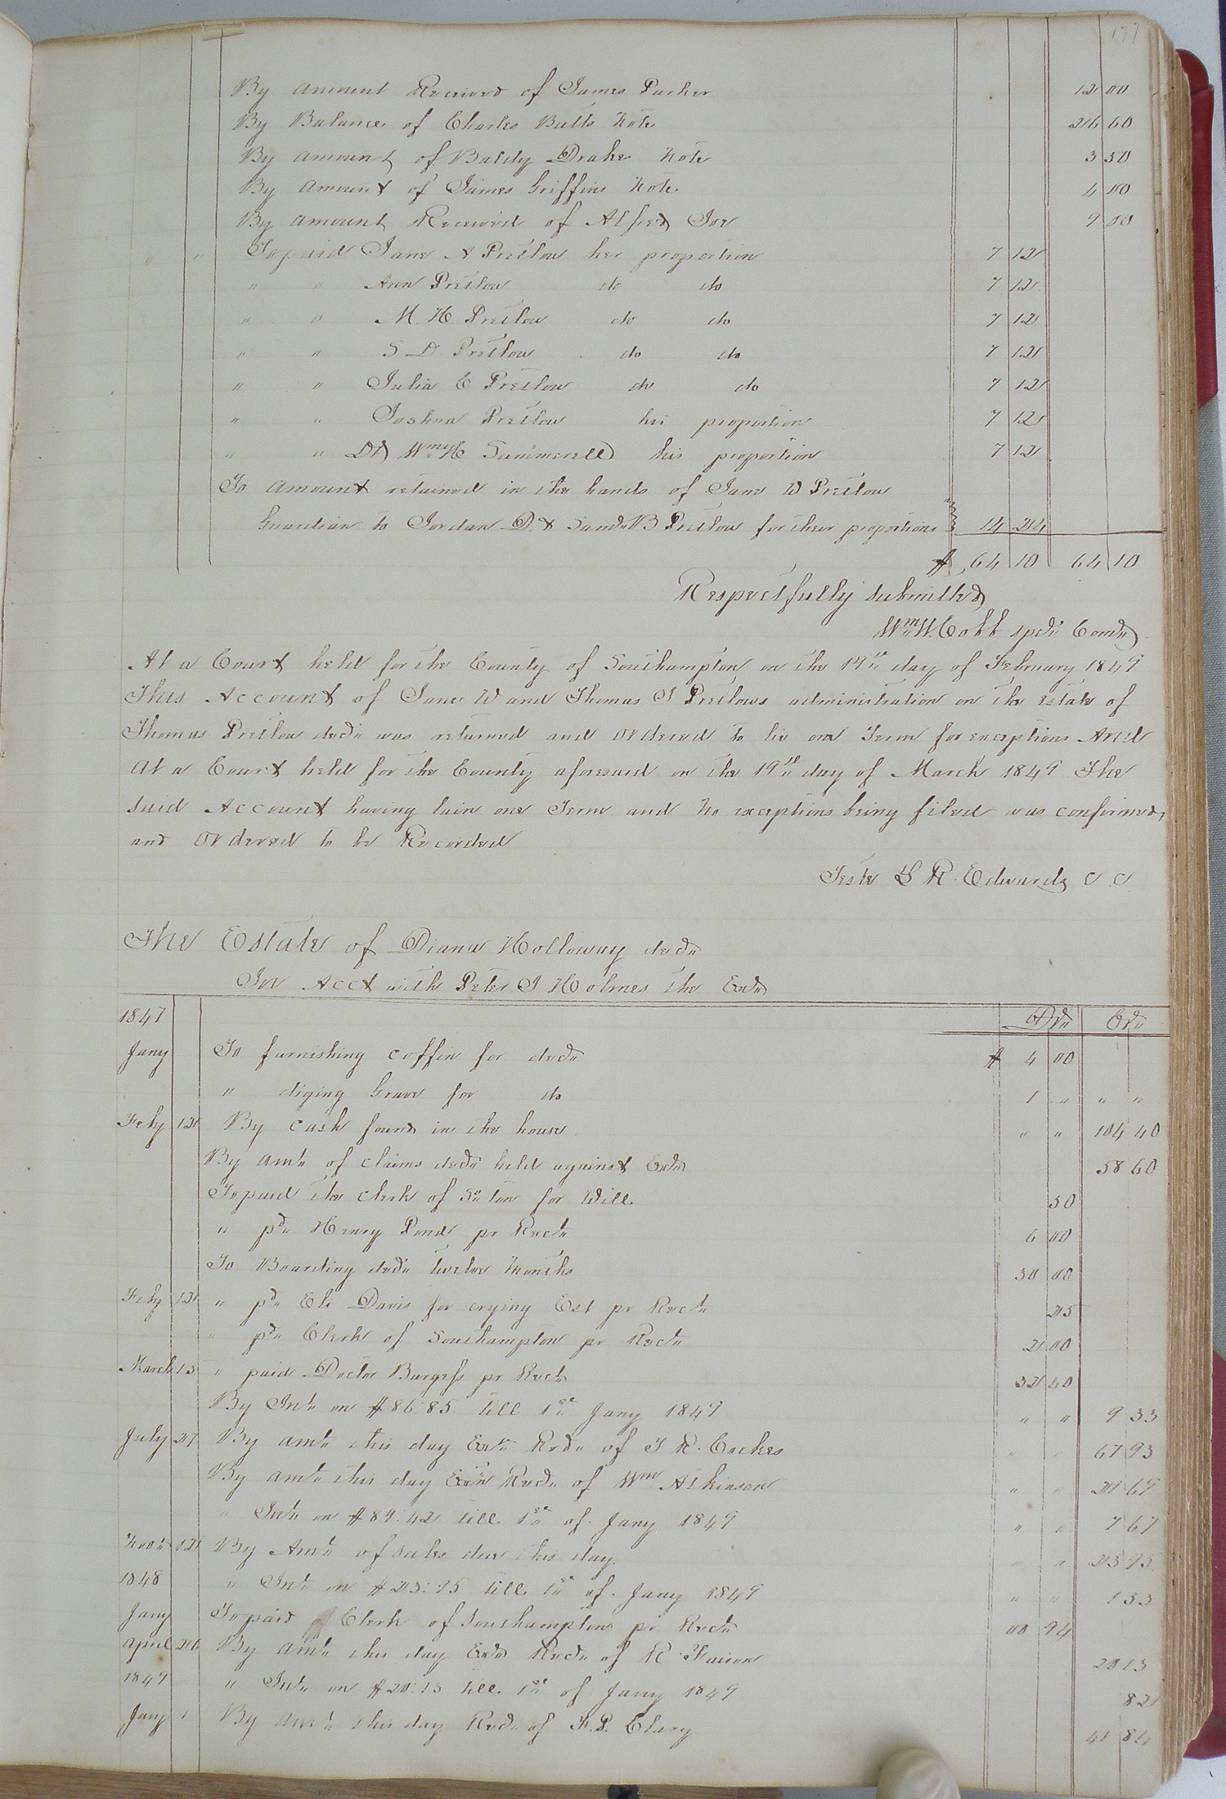 137
By amount Received of James Parker 12 00
By Balance of Charles Butts Note 26 60
By amount of Baldy Drakes Note 3 50
By amount of James Griffins Note 4 00
By amount Received of Alfred 9 00
" " To paid Jane A Pretlow her proportion 7 12
" " Ann Pretlow do do 7 12
" " M. H. Pretlow do do 7 12
" " S D Pretlow do do 7 12
" " Julia C Pretlow do do 7 12
" " Joshua Pretlow his proportion 7 12
" " Wm H Summerell his proportion 7 12
To amount retained in the hands of Jane W Pretlow
Guardian to Jordan D. & B Pretlow for their proportions 14 24
$ 64 10 64 10
Respectfully submitted
Wm W. Cobb
At a Court held for the County of Southampton on the 19th day of February 1849
This Account of Jane W and Thomas J Pretlows administration on the estate of
Thomas Pretlow decd was returned and ordered to lie one Term for exceptions And
At a Court held for the County aforesaid on the 19th day of March 1849 The
said Account having lain one Term and no exceptions being filed was confirmed
and ordered to be Recorded
Teste L R Edwards C C
The Estate of Diana Holloway decd
In Acct with Peter J Holmes the Exr
1847 Dr Cr
Jany To furnishing coffin for decd $ 4 00
" diging Grave for do 1 " " "
Feby 12 By cash found in the house " " 104 40
By amt of claims decd held against Exr 58 60
To paid the clerk of for Will 50
" pd Henry Pond pr Rect 6 00
To Boarding decd twelve months 30 00
Feby 12 " pd Eli Davis for crying Est pr Rect 25
" pd Clerk of Southampton pr Rect 2 00
March 15 " paid Doctor Burgess pr Rect 32 40
By Int on $86.85 till 1st Jany 1849 " " 9 33
July 27 By amt this day Exr Recd of J R. Cockes " " 67 93
By amt this day Exr Recd of Wm Atkinson " " 21 69
" Int on $89.42 till 1st of Jany 1849 " " 7 67
Novr 12 By Amt of sales due this day " " 23 95
1848 " Int on $23.95 till 1st of Jany 1849 " " 1 53
Jany To paid Clerk of Southampton pr Rect 00 94
April 20 By amt this day Exr Recd of R 20 15
1849 " Int on $20.15 till 1st of Jany 1849 82
Jany 1 By amt this day Recd of F. P. Clary 41 84